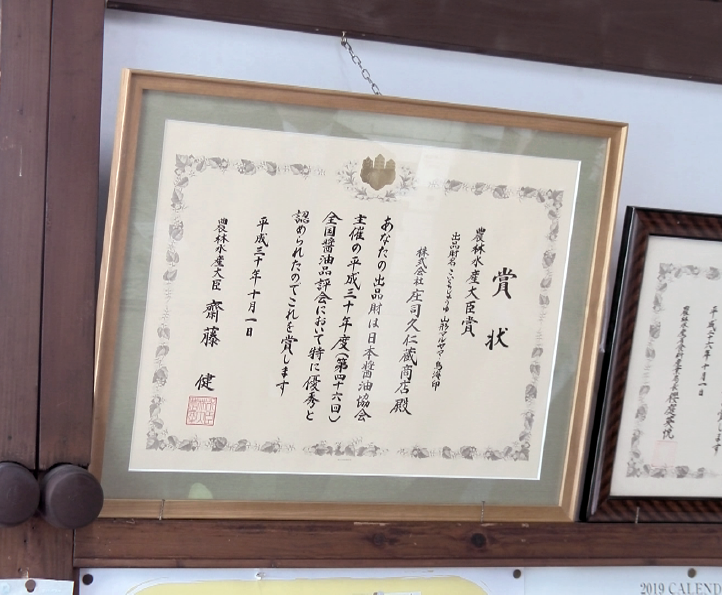 賞状
農林水産大臣賞
出品財名 こいくちしょうゆ 山形マルヤマ 鳥海印
株式会社 庄司久仁蔵商店 殿
あなたの出品財は日本醤油協会
主催の平成三十年度(第四十六回)
全国醤油品評会において特に優秀と
認められたのでこれを賞します
平成三十年十月一日
農林水産大臣 齋藤 健
平成二十六年十月一日
2019 CALEND